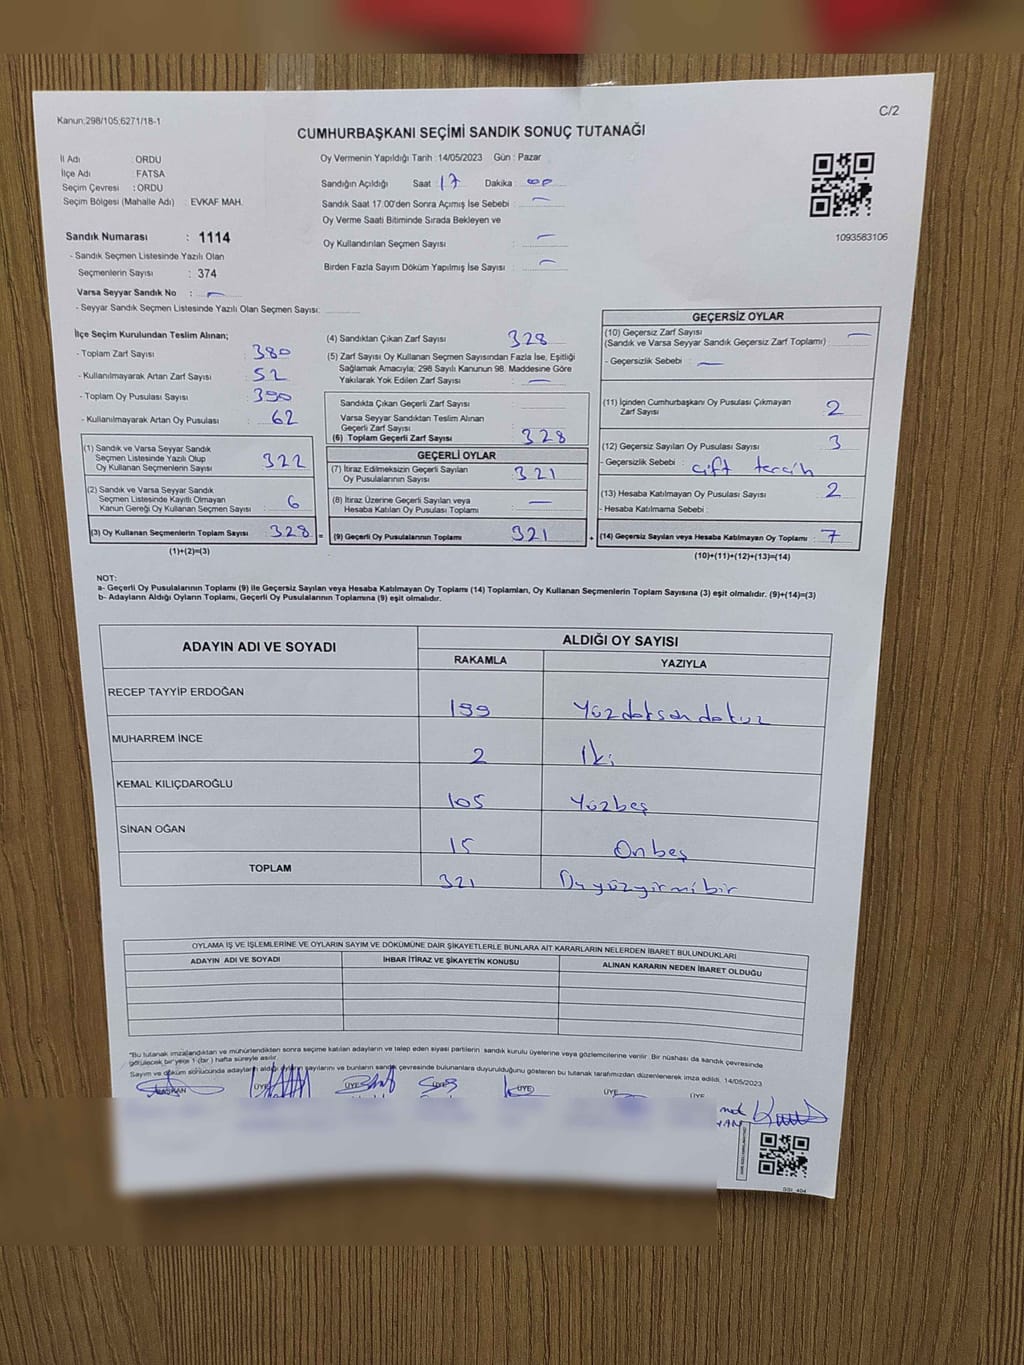 Kanun;298/105;6271/18-1
C/2
CUMHURBAŞKANI SEÇİMİ SANDIK SONUÇ TUTANAĞI
İl Adı : ORDU
İlçe Adı : FATSA
Seçim Çevresi : ORDU
Seçim Bölgesi (Mahalle Adı) : EVKAF MAH.
Sandık Numarası : 1114
- Sandık Seçmen Listesinde Yazılı Olan
Seçmenlerin Sayısı : 374
Varsa Seyyar Sandık No : —
- Seyyar Sandık Seçmen Listesinde Yazılı Olan Seçmen Sayısı:
Oy Vermenin Yapıldığı Tarih : 14/05/2023 Gün : Pazar
Sandığın Açıldığı Saat : 17 Dakika : 00
Sandık Saat 17.00'den Sonra Açımış İse Sebebi : —
Oy Verme Saati Bitiminde Sırada Bekleyen ve
Oy Kullandırılan Seçmen Sayısı : —
Birden Fazla Sayım Döküm Yapılmış İse Sayısı : —
1093583106
İlçe Seçim Kurulundan Teslim Alınan;
- Toplam Zarf Sayısı : 380
- Kullanılmayarak Artan Zarf Sayısı : 52
- Toplam Oy Pusulası Sayısı : 390
- Kullanılmayarak Artan Oy Pusulası : 62
(1) Sandık ve Varsa Seyyar Sandık
Seçmen Listesinde Yazılı Olup
Oy Kullanan Seçmenlerin Sayısı : 322
(2) Sandık ve Varsa Seyyar Sandık
Seçmen Listesinde Kayıtlı Olmayan
Kanun Gereği Oy Kullanan Seçmen Sayısı : 6
(3) Oy Kullanan Seçmenlerin Toplam Sayısı : 328 =
(1)+(2)=(3)
(4) Sandıktan Çıkan Zarf Sayısı : 328
(5) Zarf Sayısı Oy Kullanan Seçmen Sayısından Fazla İse, Eşitliği
Sağlamak Amacıyla; 298 Sayılı Kanunun 98. Maddesine Göre
Yakılarak Yok Edilen Zarf Sayısı : —
Sandıkta Çıkan Geçerli Zarf Sayısı :
Varsa Seyyar Sandıktan Teslim Alınan
Geçerli Zarf Sayısı :
(6) Toplam Geçerli Zarf Sayısı : 328
GEÇERLİ OYLAR
(7) İtiraz Edilmeksizin Geçerli Sayılan
Oy Pusulalarının Sayısı : 321
(8) İtiraz Üzerine Geçerli Sayılan veya
Hesaba Katılan Oy Pusulası Toplamı : —
(9) Geçerli Oy Pusulalarının Toplamı : 321 +
GEÇERSİZ OYLAR
(10) Geçersiz Zarf Sayısı
(Sandık ve Varsa Seyyar Sandık Geçersiz Zarf Toplamı) : —
- Geçersizlik Sebebi : —
(11) İçinden Cumhurbaşkanı Oy Pusulası Çıkmayan
Zarf Sayısı : 2
(12) Geçersiz Sayılan Oy Pusulası Sayısı : 3
- Geçersizlik Sebebi : çift tercih
(13) Hesaba Katılmayan Oy Pusulası Sayısı : 2
- Hesaba Katılmama Sebebi :
(14) Geçersiz Sayılan veya Hesaba Katılmayan Oy Toplamı : 7
(10)+(11)+(12)+(13)=(14)
NOT:
a- Geçerli Oy Pusulalarının Toplamı (9) ile Geçersiz Sayılan veya Hesaba Katılmayan Oy Toplamı (14) Toplamları, Oy Kullanan Seçmenlerin Toplam Sayısına (3) eşit olmalıdır. (9)+(14)=(3)
b- Adayların Aldığı Oyların Toplamı, Geçerli Oy Pusulalarının Toplamına (9) eşit olmalıdır.
ADAYIN ADI VE SOYADI
ALDIĞI OY SAYISI
RAKAMLA YAZIYLA
RECEP TAYYİP ERDOĞAN 199 Yüzdoksandokuz
MUHARREM İNCE 2 İki
KEMAL KILIÇDAROĞLU 105 Yüzbeş
SİNAN OĞAN 15 Onbeş
TOPLAM 321 Üçyüzyirmibir
OYLAMA İŞ VE İŞLEMLERİNE VE OYLARIN SAYIM VE DÖKÜMÜNE DAİR ŞİKAYETLERLE BUNLARA AİT KARARLARIN NELERDEN İBARET BULUNDUKLARI
ADAYIN ADI VE SOYADI İHBAR İTİRAZ VE ŞİKAYETİN KONUSU ALINAN KARARIN NEDEN İBARET OLDUĞU
"Bu tutanak imzalandıktan ve mühürlendikten sonra seçime katılan adayların ve talep eden siyasi partilerin sandık kurulu üyelerine veya gözlemcilerine verilir. Bir nüshası da sandık çevresinde
görülecek bir yere 1 (bir ) hafta süreyle asılır.
Sayım ve döküm sonucunda adayların aldığı oyların sayılarını ve bunların sandık çevresinde bulunanlara duyurulduğunu gösteren bu tutanak tarafımızdan düzenlenerek imza edildi. 14/05/2023
BAŞKAN ÜYE ÜYE ÜYE ÜYE ÜYE ÜYE